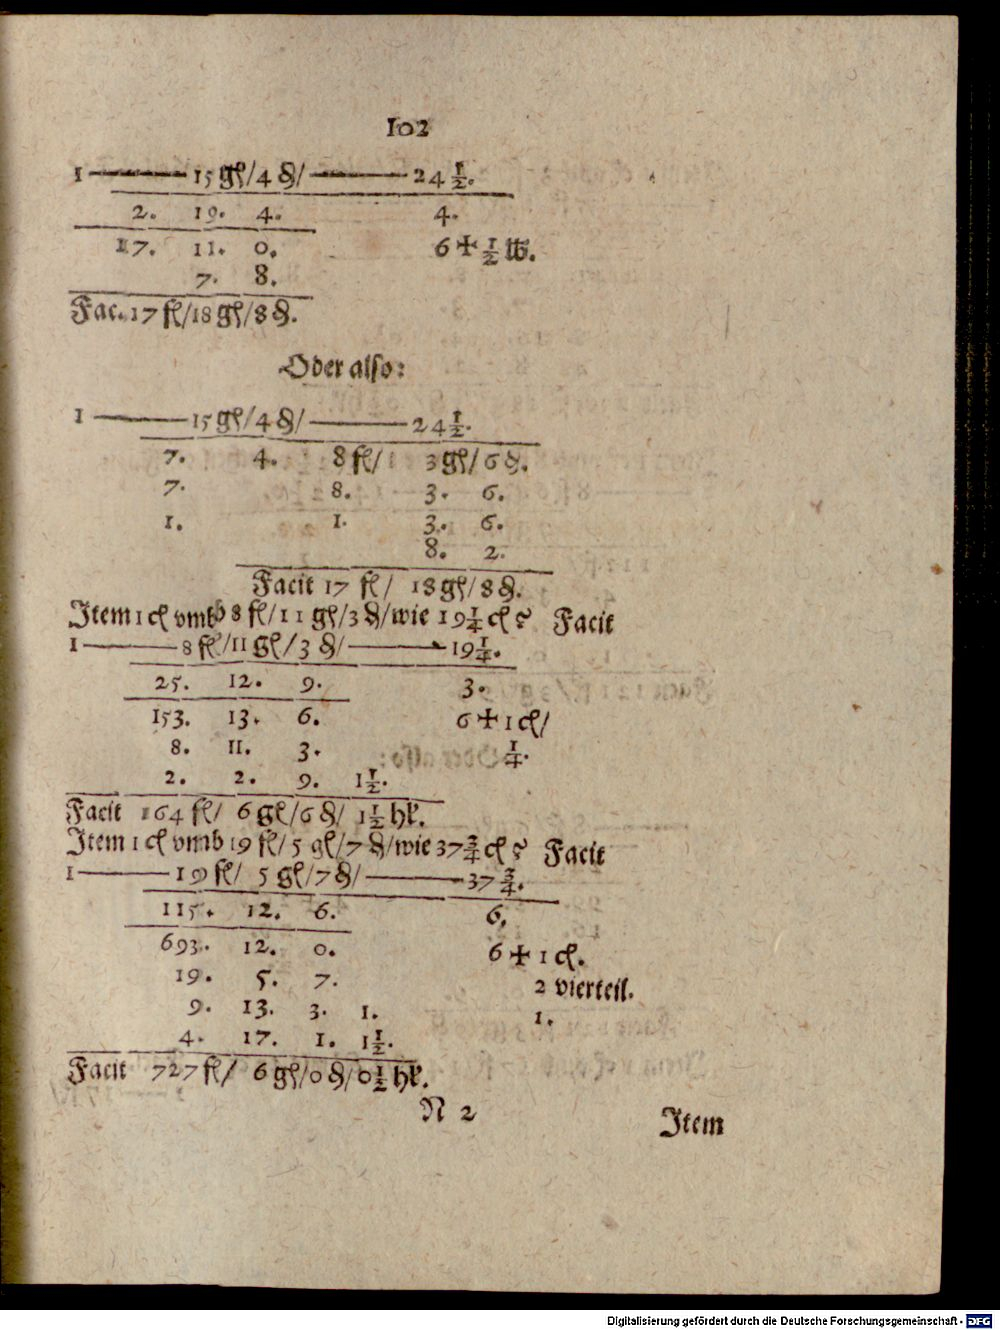 102
1 ——— 15 gl/ 4 ₰/ ——— 24 1/2.
2. 19. 4. 4.
17. 11. 0. 6 ✠ 1/2 lb.
7. 8.
Fac. 17 fl/ 18 gl/ 8 ₰.
Oder also:
1 ——— 15 gl/ 4 ₰/ ——— 24 1/2.
7. 4. 8 fl/ 1 3 gl/ 6 ₰.
7. 8. 3. 6.
1. 1. 3. 6.
8. 2.
Facit 17 fl/ 18 gl/ 8 ₰.
Item 1 cl vmb 8 fl/ 11 gl/ 3 ₰/ wie 19 1/4 cl? Facit
1 ——— 8 fl/ 11 gl/ 3 ₰/ ——— 19 1/4.
25. 12. 9. 3.
153. 13. 6. 6 ✠ 1 cl/
8. 11. 3. 1/4.
2. 2. 9. 1 1/2.
Facit 164 fl/ 6 gl/ 6 ₰/ 1 1/2 hl.
Item 1 cl vmb 19 fl/ 5 gl/ 7 ₰/ wie 37 3/4 cl? Facit
1 ——— 19 fl/ 5 gl/ 7 ₰/ ——— 37 3/4.
115. 12. 6. 6.
693. 12. 0. 6 ✠ 1 cl.
19. 5. 7. 2 vierteil.
9. 13. 3. 1. 1.
4. 17. 1. 1 1/2.
Facit 727 fl/ 6 gl/ 0 ₰/ 0 1/2 hl.
N 2 Item
Digitalisierung gefördert durch die Deutsche Forschungsgemeinschaft - DFG